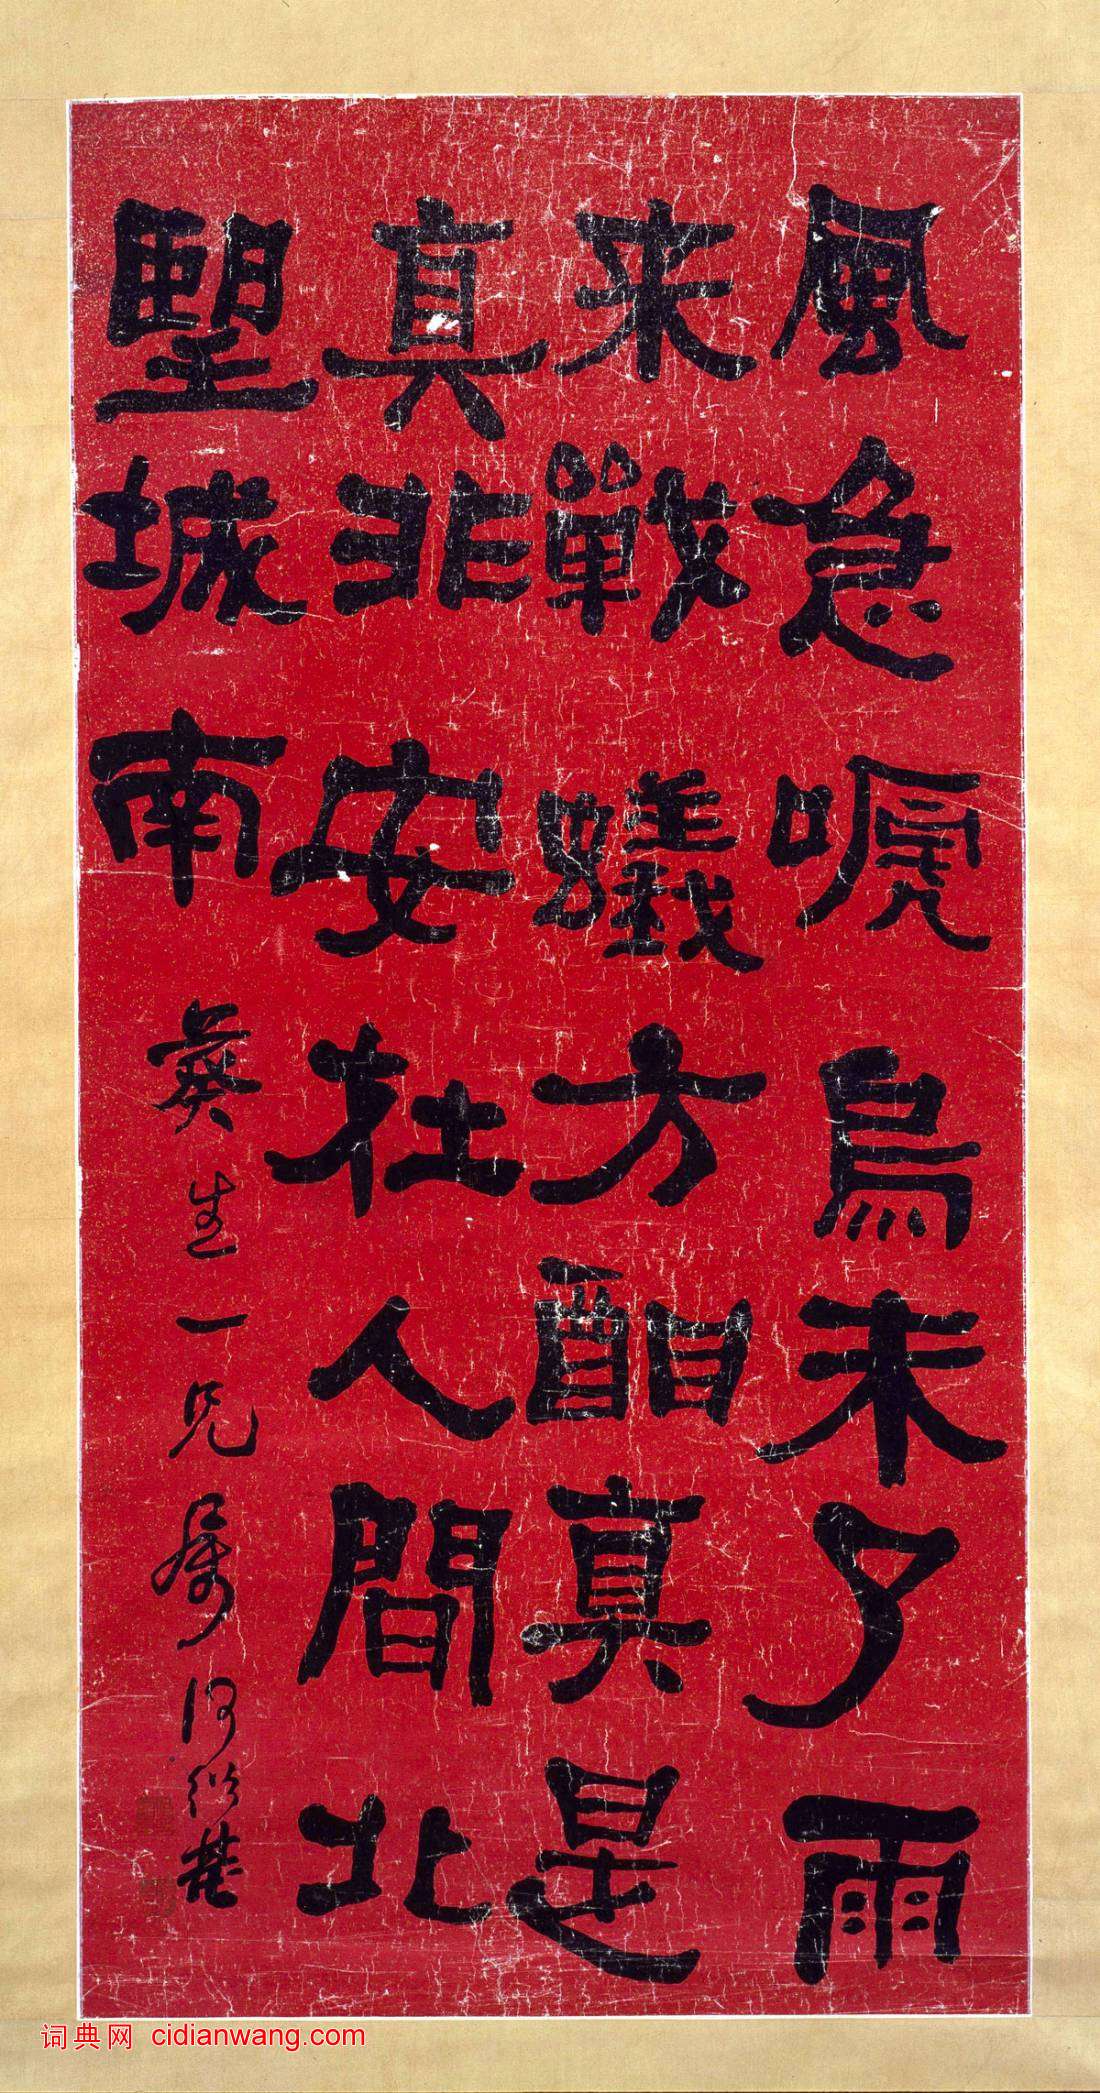 風急嗁烏未了雨
来戰蟻方酣真是
真非安在人間北
朢城南
彝生一兄屬 何紹基
词典网 cidianwang.com